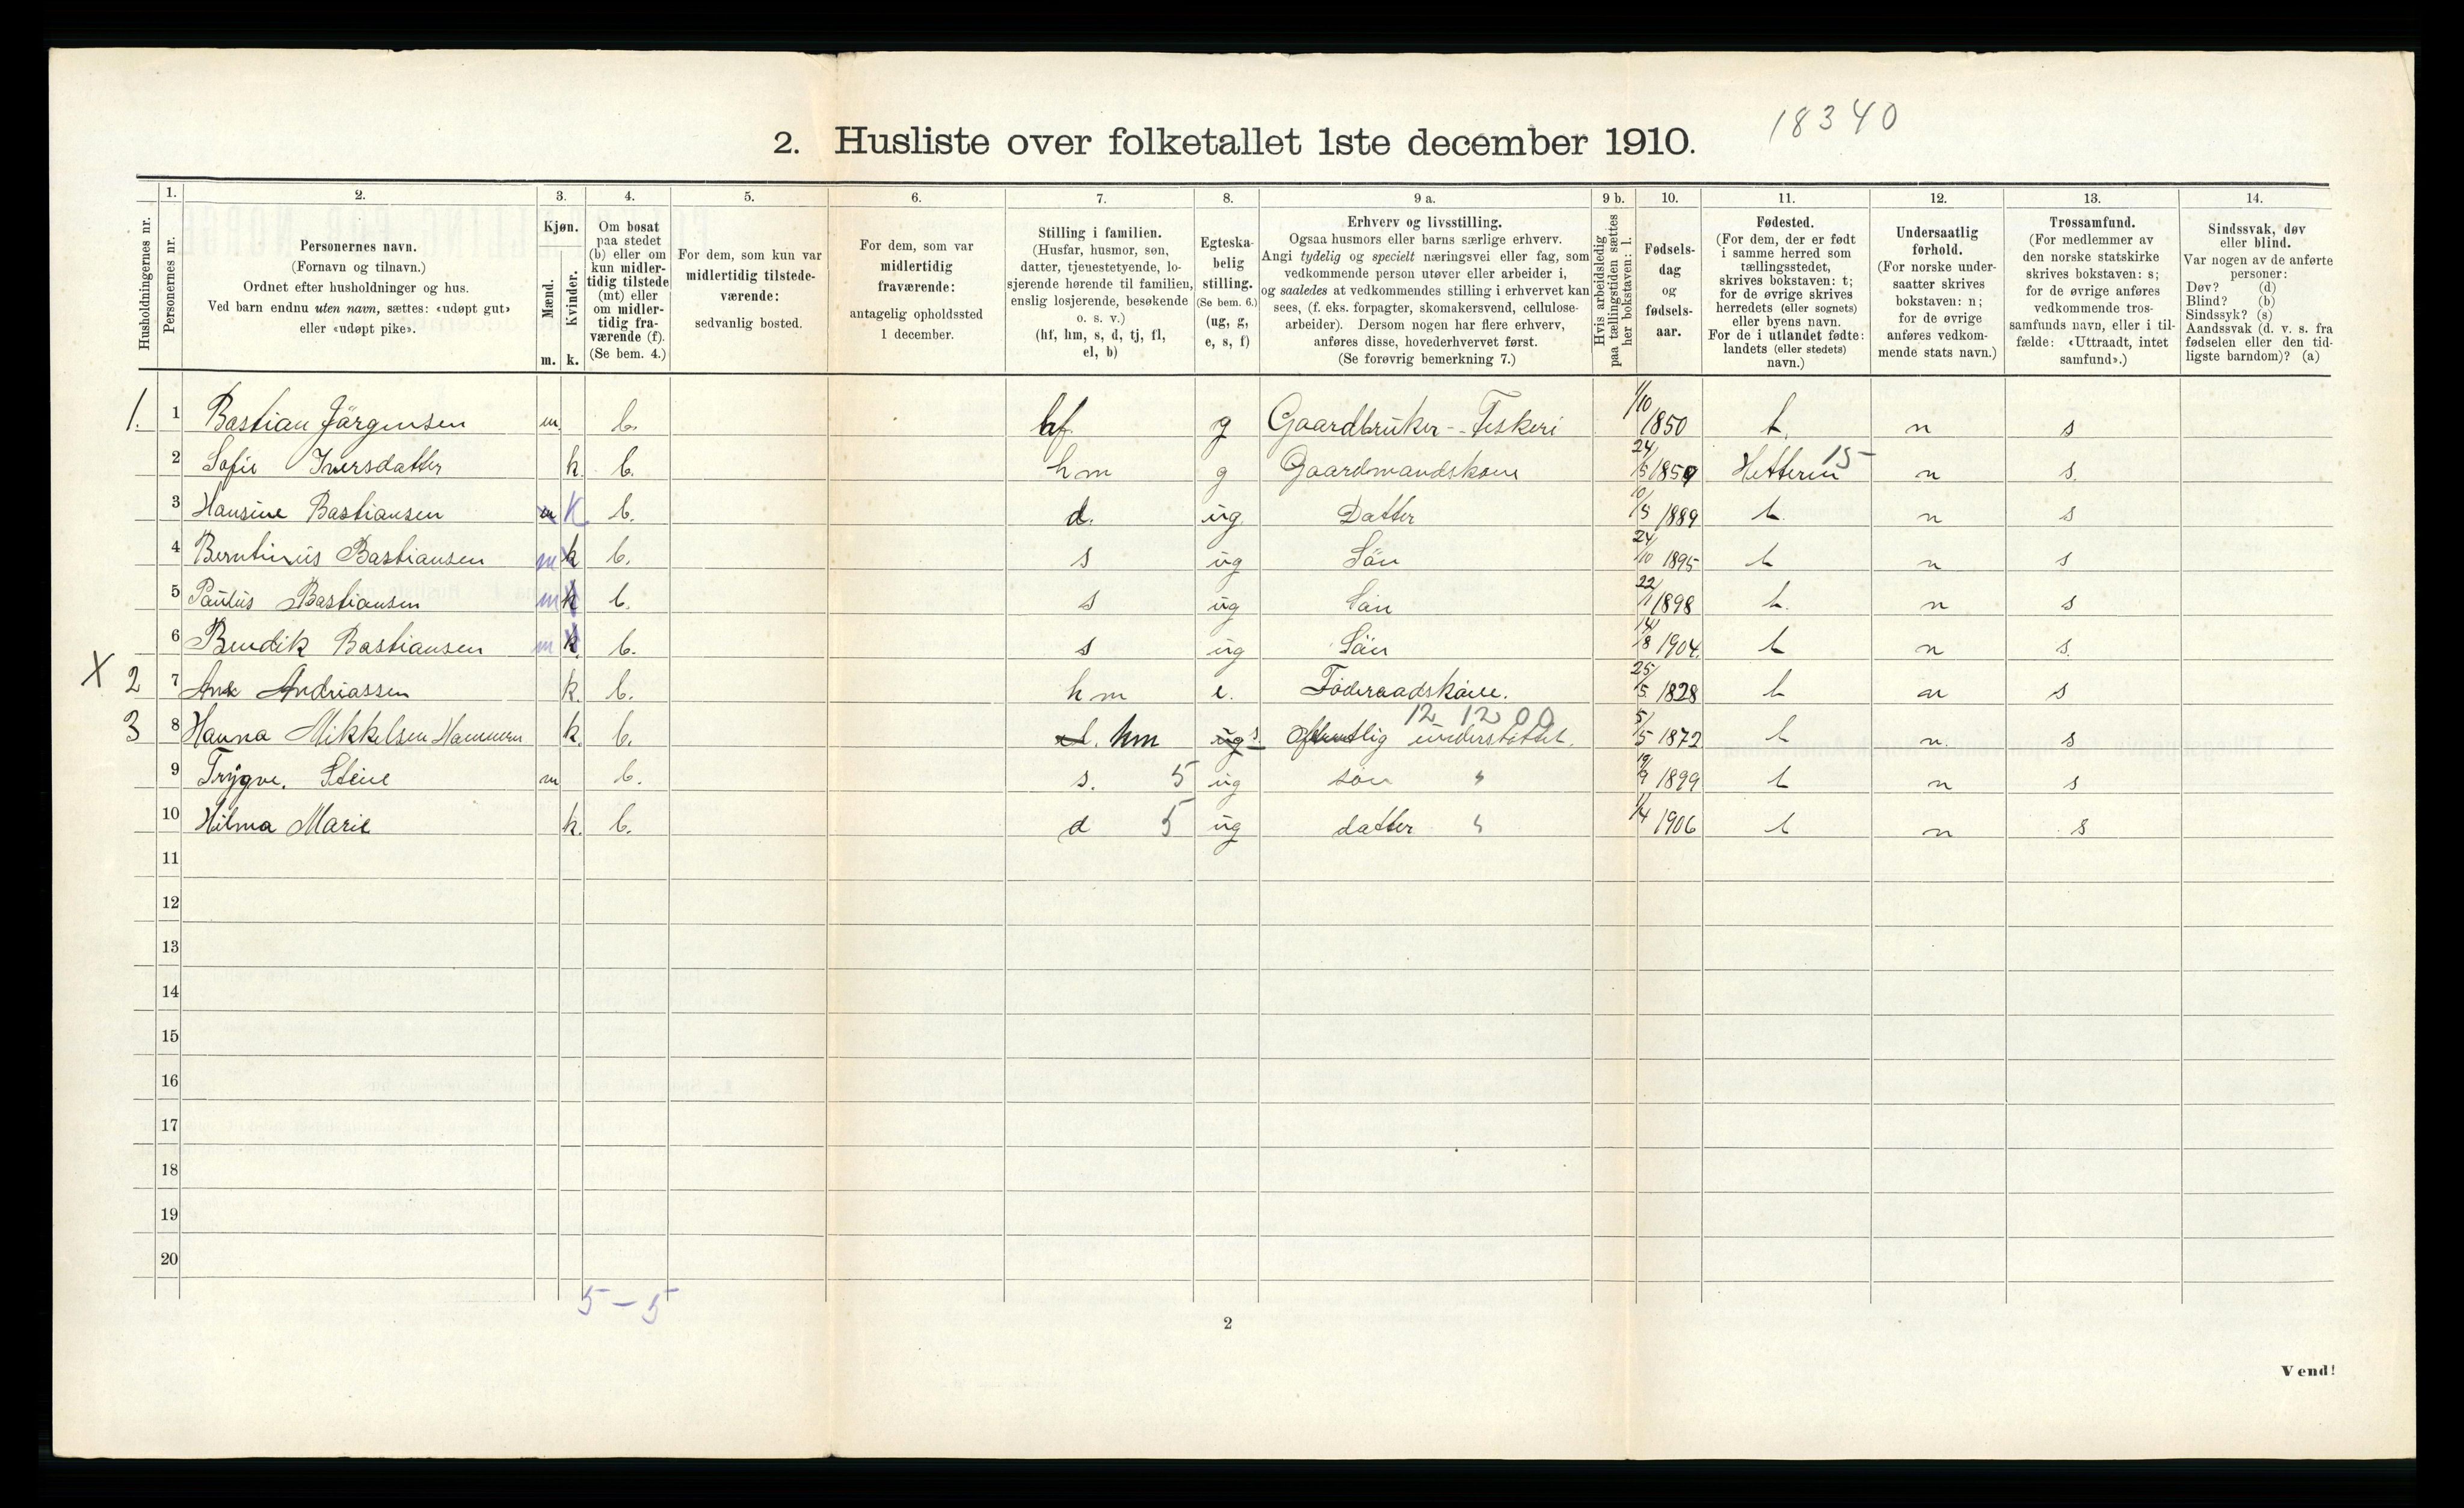 18340
2. Husliste over folketallet 1ste december 1910.
Husholdningernes nr.
1.
Personernes nr.
2.
Personernes navn.
(Fornavn og tilnavn.)
Ordnet efter husholdninger og hus.
Ved barn endnu uten navn, sættes: «udøpt gut»
eller «udøpt pike».
3.
Kjøn.
Mænd.
m.
Kvinder.
k.
4.
Om bosat
paa stedet
(b) eller om
kun midler-
tidig tilstede
(mt) eller
om midler-
tidig fra-
værende (f).
(Se bem. 4.)
5.
For dem, som kun var
midlertidig tilstede-
værende:
sedvanlig bosted.
6.
For dem, som var
midlertidig
fraværende:
antagelig opholdssted
1 december.
7.
Stilling i familien.
(Husfar, husmor, søn,
datter, tjenestetyende, lo-
sjerende hørende til familien,
enslig losjerende, besøkende
o. s. v.)
(hf, hm, s, d, tj, fl,
el, b)
8.
Egteska-
belig
stilling.
(Se bem. 6.)
(ug, g,
e, s, f)
9 a.
Erhverv og livsstilling.
Ogsaa husmors eller barns særlige erhverv.
Angi tydelig og specielt næringsvei eller fag, som
vedkommende person utøver eller arbeider i,
og saaledes at vedkommendes stilling i erhvervet kan
sees, (f. eks. forpagter, skomakersvend, cellulose-
arbeider). Dersom nogen har flere erhverv,
anføres disse, hovederhvervet først.
(Se forøvrig bemerkning 7.)
9 b.
Hvis arbeidsledig
paa tællingstiden sættes
her bokstaven: l.
10.
Fødsels-
dag
og
fødsels-
aar.
11.
Fødested.
(For dem, der er født
i samme herred som
tællingsstedet,
skrives bokstaven: t;
for de øvrige skrives
herredets (eller sognets)
eller byens navn.
For de i utlandet fødte:
landets (eller stedets)
navn.)
12.
Undersaatlig
forhold.
(For norske under-
saatter skrives
bokstaven: n;
for de øvrige
anføres vedkom-
mende stats navn.)
13.
Trossamfund.
(For medlemmer av
den norske statskirke
skrives bokstaven: s;
for de øvrige anføres
vedkommende tros-
samfunds navn, eller i til-
fælde: «Uttraadt, intet
samfund».)
14.
Sindssvak, døv
eller blind.
Var nogen av de anførte
personer:
Døv? (d)
Blind? (b)
Sindssyk? (s)
Aandssvak (d. v. s. fra
fødselen eller den tid-
ligste barndom)? (a)
1. 1 Bastian Jörgensen m. b. hf g Gaardbruker - Fiskeri 1/10 1850 t. n s
2 Sofie Iversdatter k. b. hm g Gaardmandskone 24/5 1859 Hitteren 15 n s.
3 Hansine Bastiansen m K b. d. ug Datter 10/5 1889 t. n s
4 Berntinus Bastiansen m k b. s ug Sön 24/10 1895 t n s
5 Paulus Bastiansen m k b. s ug Sön 22/1 1898 t. n s
6 Bendik Bastiansen m k b. s ug Sön 14/8 1904. t n s.
X 2 7 Ane Andriassen k. b. hm e. Föderaadskone. 25/5 1828 t n s
3 8 Hanna Mikkelsen Hammern k. b. el. hm ug s Offentlig understöttet. 12 12 00 5/5 1872 t n. s
9 Trygve. Steine m b. s. 5 ug sön " 19/9 1899 t n s
10 Hilma Marie k. b. d 5 ug datter " 1/4 1906 t n s
11
12
13
14
15
16
17
18
19
20
5 - 5
2
Vend!